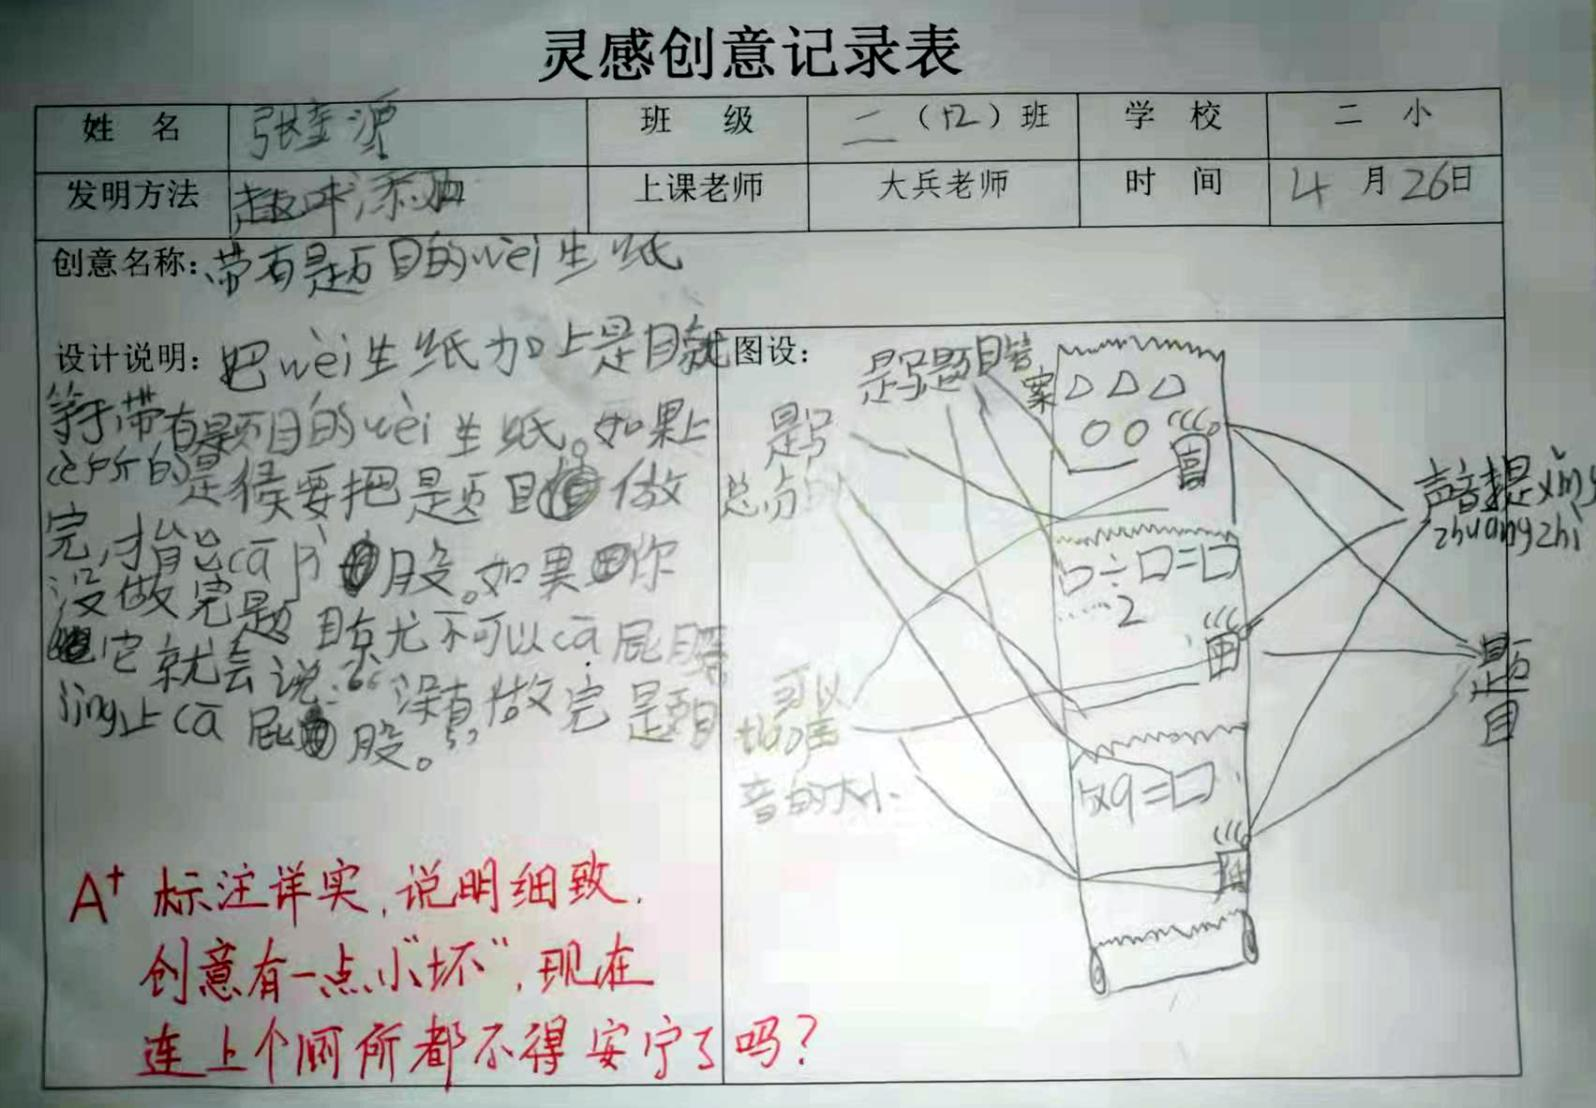 灵感创意记录表
姓 名 张奎源 班 级 二（四）班 学 校 二 小
发明方法 趣味添加 上课老师 大兵老师 时 间 4 月 26日
创意名称：带有是页目的wèi生纸
设计说明：把wèi生纸加上是目就
等于带有题目的wèi生纸。如果上
cè所的是候要把是页目做
完,才能cā pì股。如果你
没做完题目就不可以cā屁股
它就会说：“没有做完题目
jìng止cā屁股。”
A+ 标注详实,说明细致.
创意有一点小“坏”,现在
连上个厕所都不得安宁了吗?
图设：
是写题目答
案
是写
总分的
可以
tiáo声
音的大小
声音提xǐng
zhuāngzhì
题
目
△ △ △
○ ○
□÷□=□
……2
5×9=□